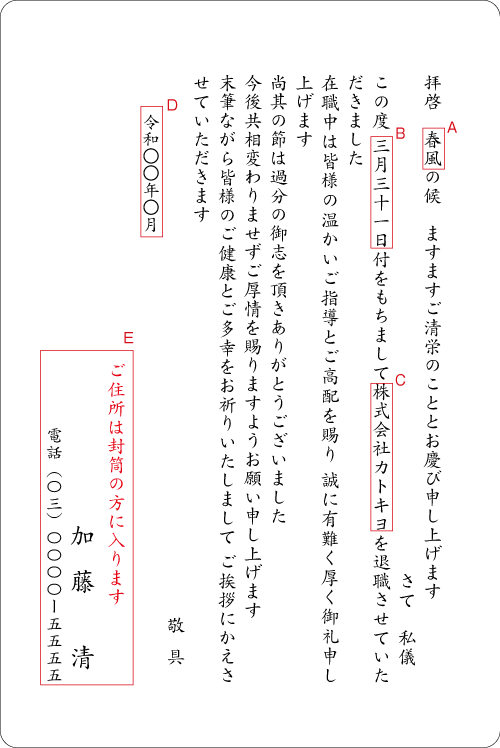 拝啓　春風の候　ますますご清栄のこととお慶び申し上げます
A
さて　私儀
この度　三月三十一日付をもちまして株式会社カトキヨを退職させていた
B
C
だきました
在職中は皆様の温かいご指導とご高配を賜り　誠に有難く厚く御礼申し
上げます
尚其の節は過分の御志を頂きありがとうございました
今後共相変わりませずご厚情を賜りますようお願い申し上げます
末筆ながら皆様のご健康とご多幸をお祈りいたしまして　ご挨拶にかえさ
せていただきます
敬具
D
令和〇〇年〇月
E
ご住所は封筒の方に入ります
加藤　清
電話（〇三）〇〇〇〇ー五五五五